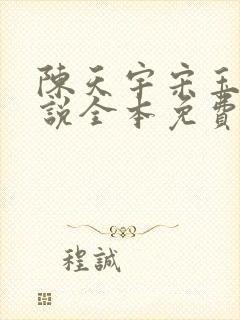 陳天宇宋玉
說全本免費
程誠